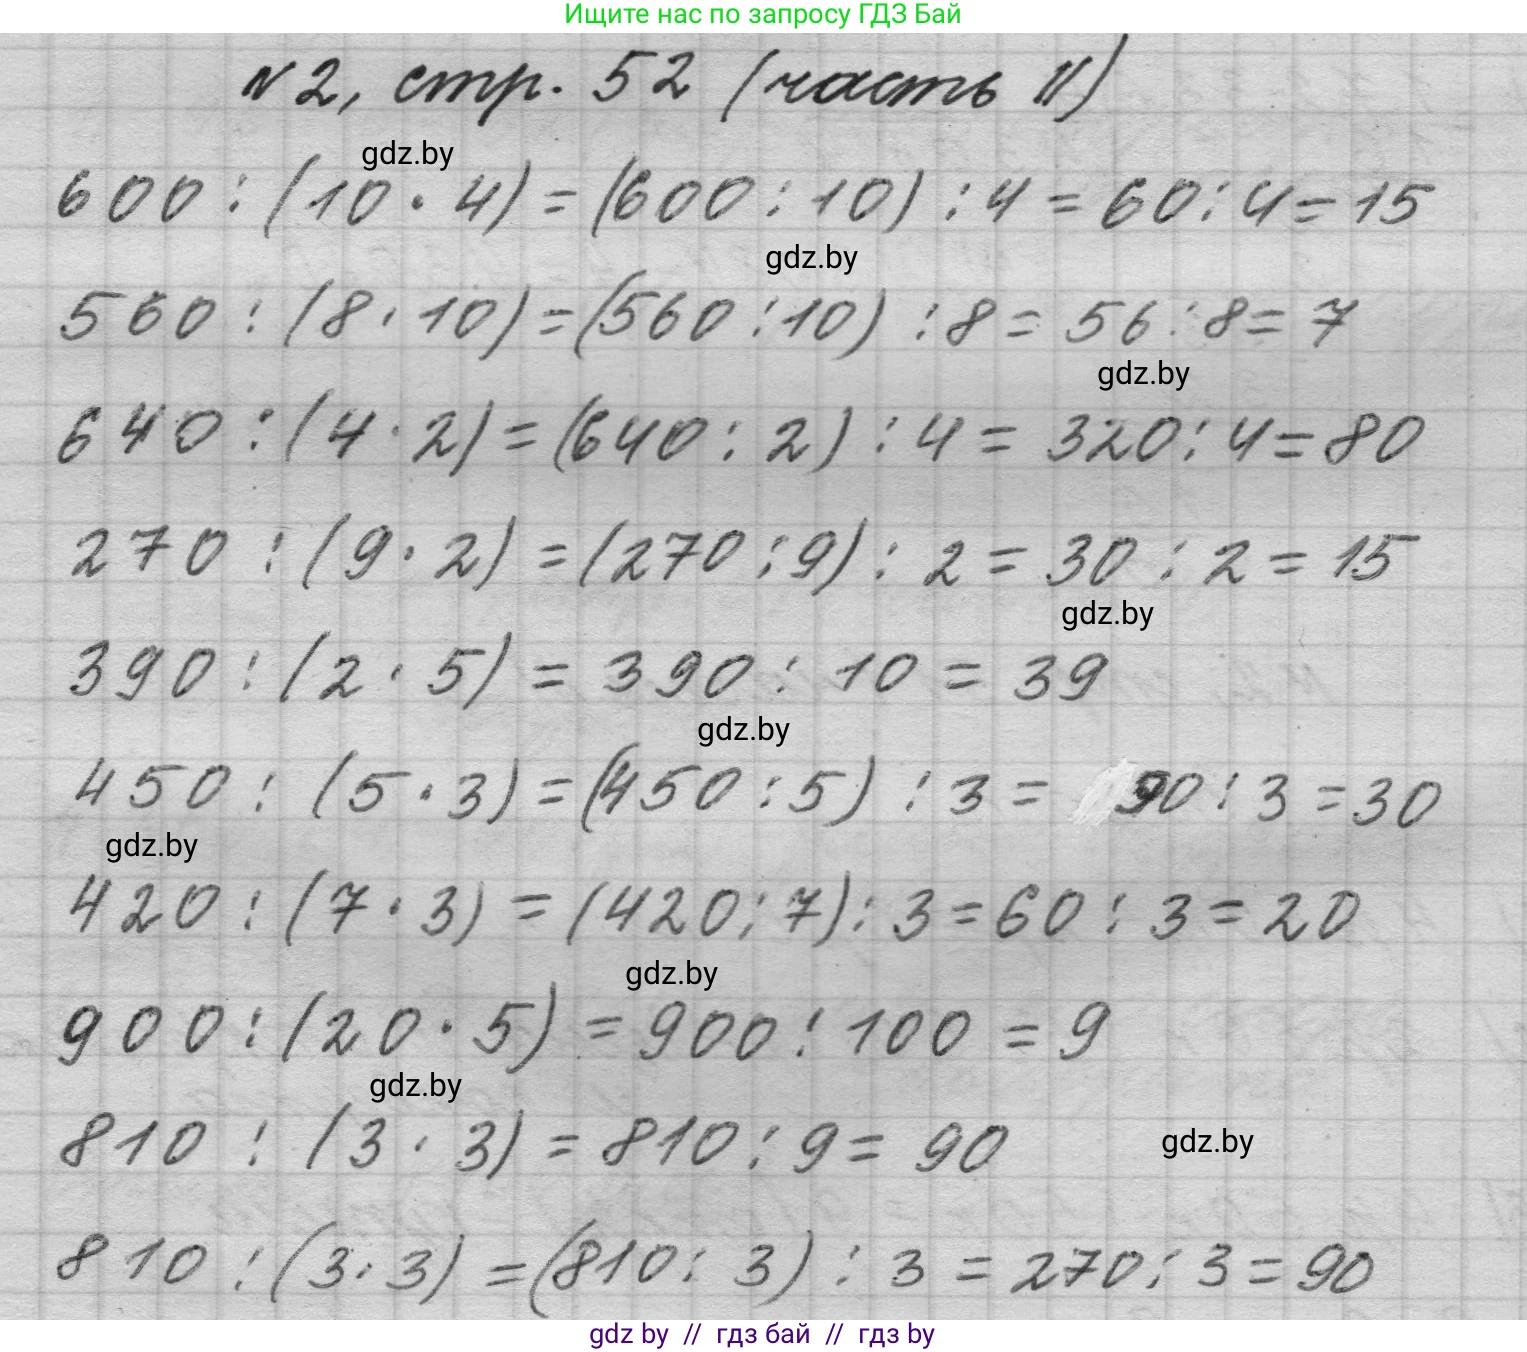 Ищите нас по запросу ГДЗ Бай
№2, стр. 52 (часть II)
gdz.by
600 : (10 · 4) = (600 : 10) : 4 = 60 : 4 = 15
gdz.by
560 : (8 · 10) = (560 : 10) : 8 = 56 : 8 = 7
gdz.by
640 : (4 · 2) = (640 : 2) : 4 = 320 : 4 = 80
270 : (9 · 2) = (270 : 9) : 2 = 30 : 2 = 15
gdz.by
390 : (2 · 5) = 390 : 10 = 39
gdz.by
450 : (5 · 3) = (450 : 5) : 3 = 90 : 3 = 30
gdz.by
420 : (7 · 3) = (420 : 7) : 3 = 60 : 3 = 20
gdz.by
900 : (20 · 5) = 900 : 100 = 9
gdz.by
810 : (3 · 3) = 810 : 9 = 90
gdz.by
810 : (3 · 3) = (810 : 3) : 3 = 270 : 3 = 90
gdz by // гдз бай // гдз by